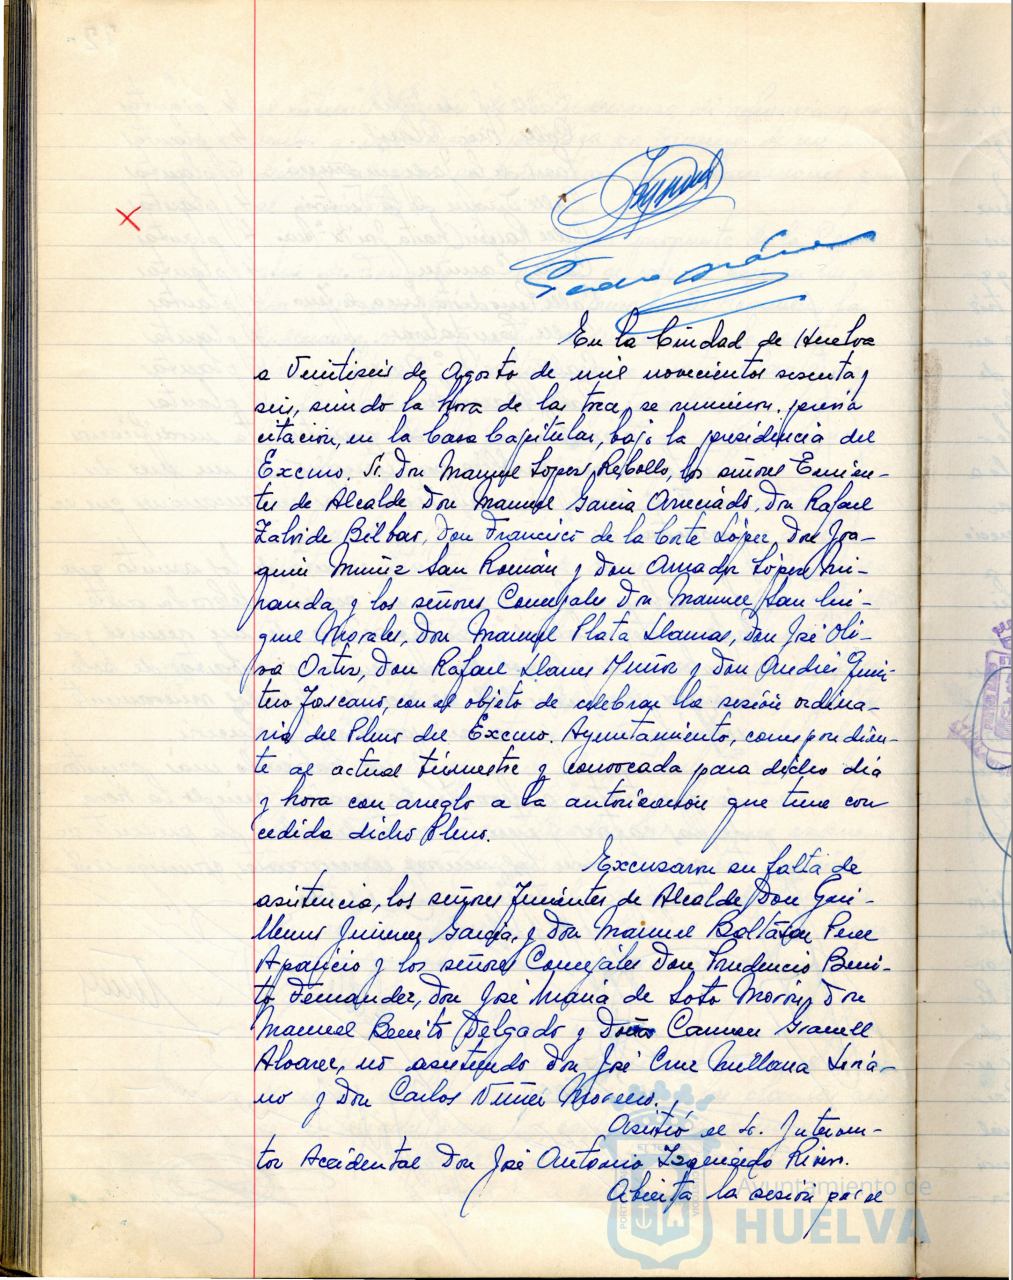 En la Ciudad de Huelva
a Veintiseis de Agosto de mil novecientos sesenta y
seis, siendo la hora de las trece, se reunieron, previa
citación, en la Casa Capitular, bajo la presidencia del
Excmo. Sr. Don Manuel Lopez Rebollo, los señores Tenien-
tes de Alcalde Don Manuel Garcia Arreciado, Don Rafael
Zalvide Bilbao, Don Francisco de la Corte López, Don Joa-
quin Muñiz San Román y Don Amador López Mi-
randa y los señores Concejales Don Manuel San Mi-
guel Morales, Don Manuel Plata Llamas, Don José Oli-
va Ortiz, Don Rafael Llanes Muñoz y Don Andrés Quin-
tero Toscano, con el objeto de celebrar la sesión ordina-
ria del Pleno del Excmo. Ayuntamiento, correspondien-
te al actual trimestre y convocada para dicho día
y hora con arreglo a la autorización que tiene con
cedida dicho Pleno.
Excusaron su falta de
asistencia, los señores Tenientes de Alcalde Don Gui-
llermo Jimenez Garcia, y Don Manuel Baltasar Perez
Aparicio y los señores Concejales Don Prudencio Beni-
to Fernandez, Don José Maria de Soto Don
Manuel Benito Delgado y Doña Carmen Granell
Alvarez, no asistiendo Don José Cruz Millana
y Don Carlos Moreno.
Asistió el Sr. Interven-
tor Accidental Don José Antonio Izquierdo
Abierta la sesión por el
Ayuntamiento de
HUELVA